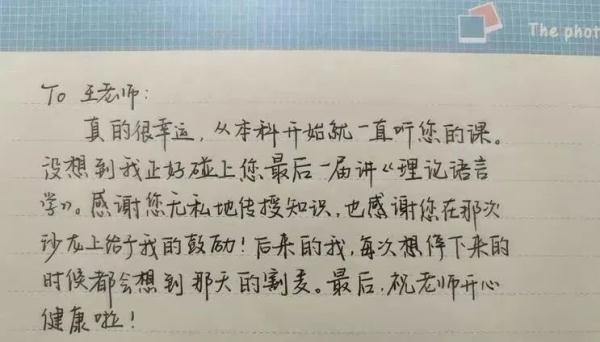 The phot
To 王老师:
真的很幸运，从本科开始就一直听您的课。
没想到我正好碰上您最后一届讲《理论语言
学》。感谢您无私地传授知识，也感谢您在那次
沙龙上给予我的鼓励！后来的我，每次想停下来的
时候都会想到那天的割麦。最后，祝老师开心
健康啦！